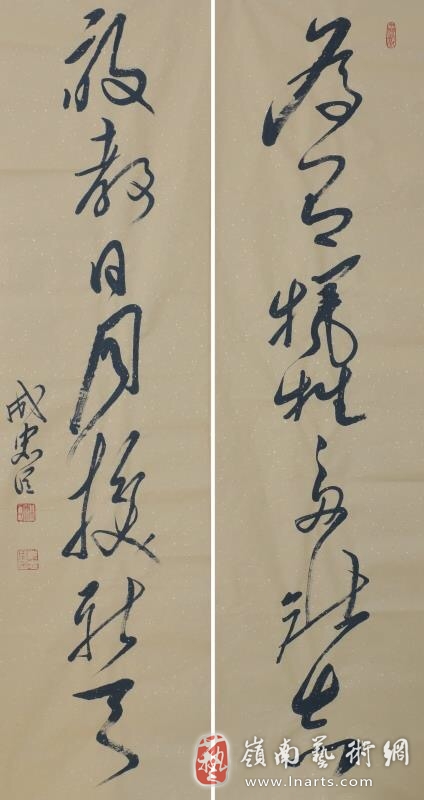 為有犧牲多壯志
敢教日月換新天
成忠臣
嶺南藝術網
www.lnarts.com